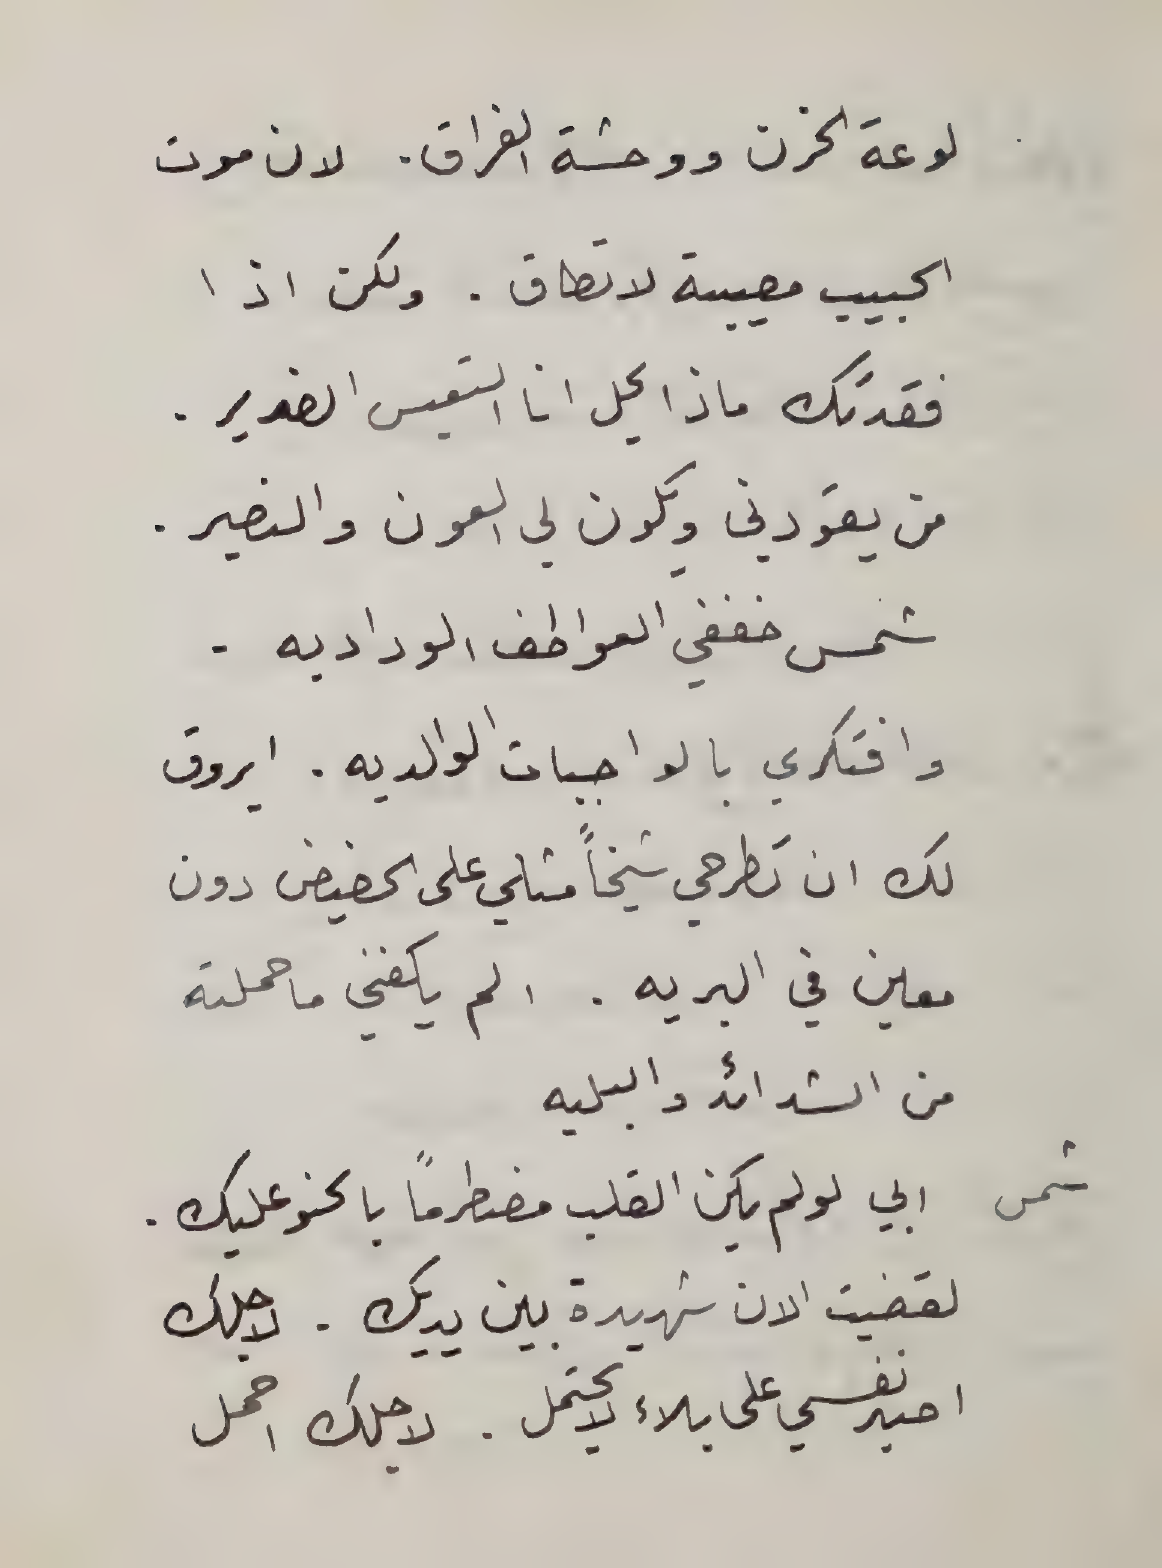 لوعة الحزن ووحشة الفراق. لان موت
الحبيب مصيبة لا تطاق. ولكن اذا
فقدتك ماذا يحل انا التعيس الضرير.
من يقودني ويكون لي العون والنصير.
شمس خففي العواطف الوداديه -
وافتكري بالواجبات الوالديه. ايروق
لك ان تطرحي شيخاً مثلي على الحضيض دون
معين في البريه. الم يكفني ما حملته
من الشدائد والبليه
شمس ابي لو لم يكن القلب مضطرماً بالحنو عليك.
لقضيت الان شهيدة بين يديك. لاجلك
اصبر نفسي على بلاء لا يحتمل. لاجلك احمل